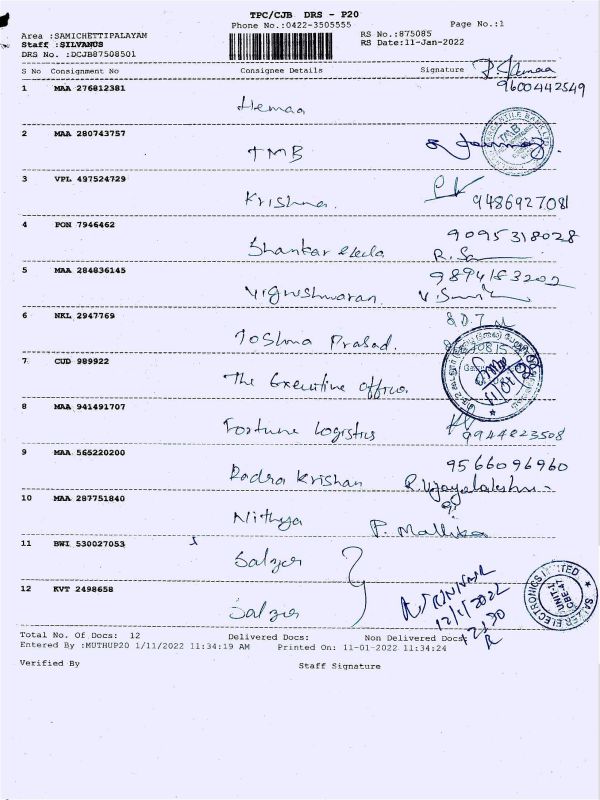 TPC/CJB DRS - P20
Phone No.:0422-3505555
Page No.:1
Area :SAMICHETTIPALAYAM
Staff :SILVANUS
DRS No. :DCJB87508501
RS No.:875085
RS Date:11-Jan-2022
S No Consignment No Consignee Details Signature
9600442549
1 MAA 276812381
Hemaa
2 MAA 280743757
TMB
3 VPL 497524729
Krishna. 9486927081
4 PON 7946462
9095318028
Shankar
5 MAA 284836145
9894183202
Vigneshwaran.
6 NKL 2947769
Joshna Prasad.
7 CUD 989922
The Executive Officer
8 MAA 941491707
Fortune Logistics 9944823508
9 MAA 565220200
9566096960
Radra Krishan R. Vijayalakshmi
10 MAA 287751840
Nithya P. Mallika
11 BWI 530027053
Salzer
12 KVT 2498658
Salzer
12/1/2022
12.30
SALZER ELECTRONICS LIMITED
UNIT-I
CBE-47
Total No. Of Docs: 12 Delivered Docs: Non Delivered Docs:
Entered By :MUTHUP20 1/11/2022 11:34:19 AM Printed On: 11-01-2022 11:34:24
Verified By Staff Signature